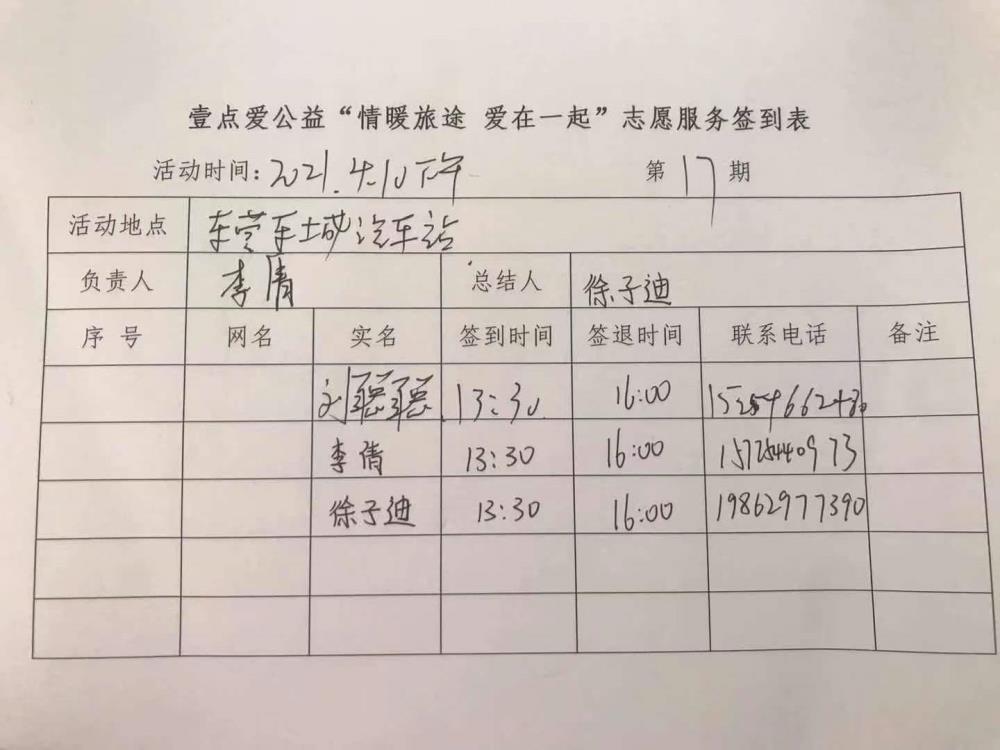 壹点爱公益“情暖旅途 爱在一起”志愿服务签到表
活动时间:2021.4.10下午 第17期
活动地点 东营东城汽车站
负责人 李倩 总结人 徐子迪
序号 网名 实名 签到时间 签退时间 联系电话 备注
刘聪聪 13:30 16:00
李倩 13:30 16:00 15725440973
徐子迪 13:30 16:00 19862977390